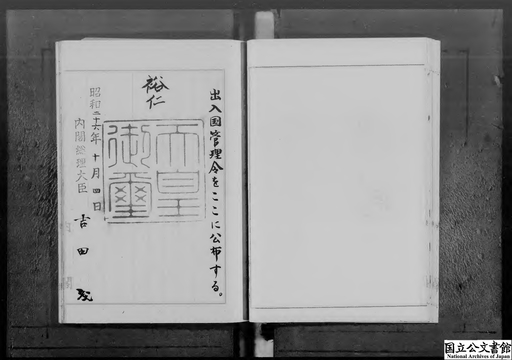 出入国管理令をここに公布する。
裕仁
天皇御璽
昭和二十六年十月四日
内閣総理大臣 吉田茂
国立公文書館
National Archives of Japan